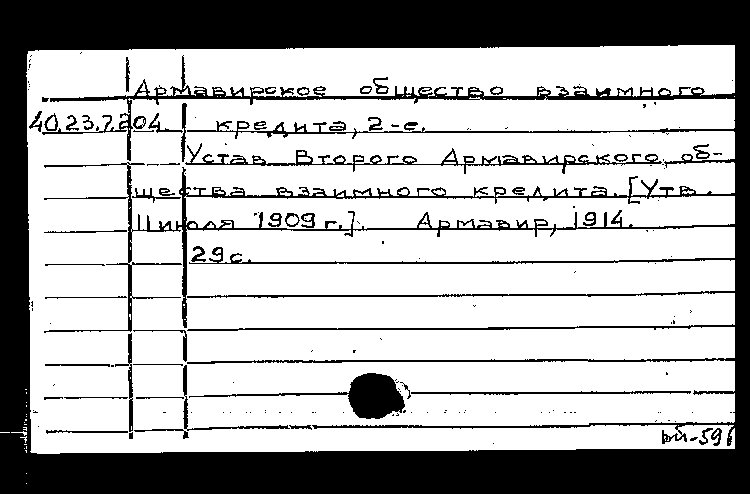 Армавирское общество взаимного
40.23.7.204. кредита, 2-е.
Устав Второго Армавирского об-
щества взаимного кредита. [Утв.
11 июля 1909 г.]. Армавир, 1914.
29 с.